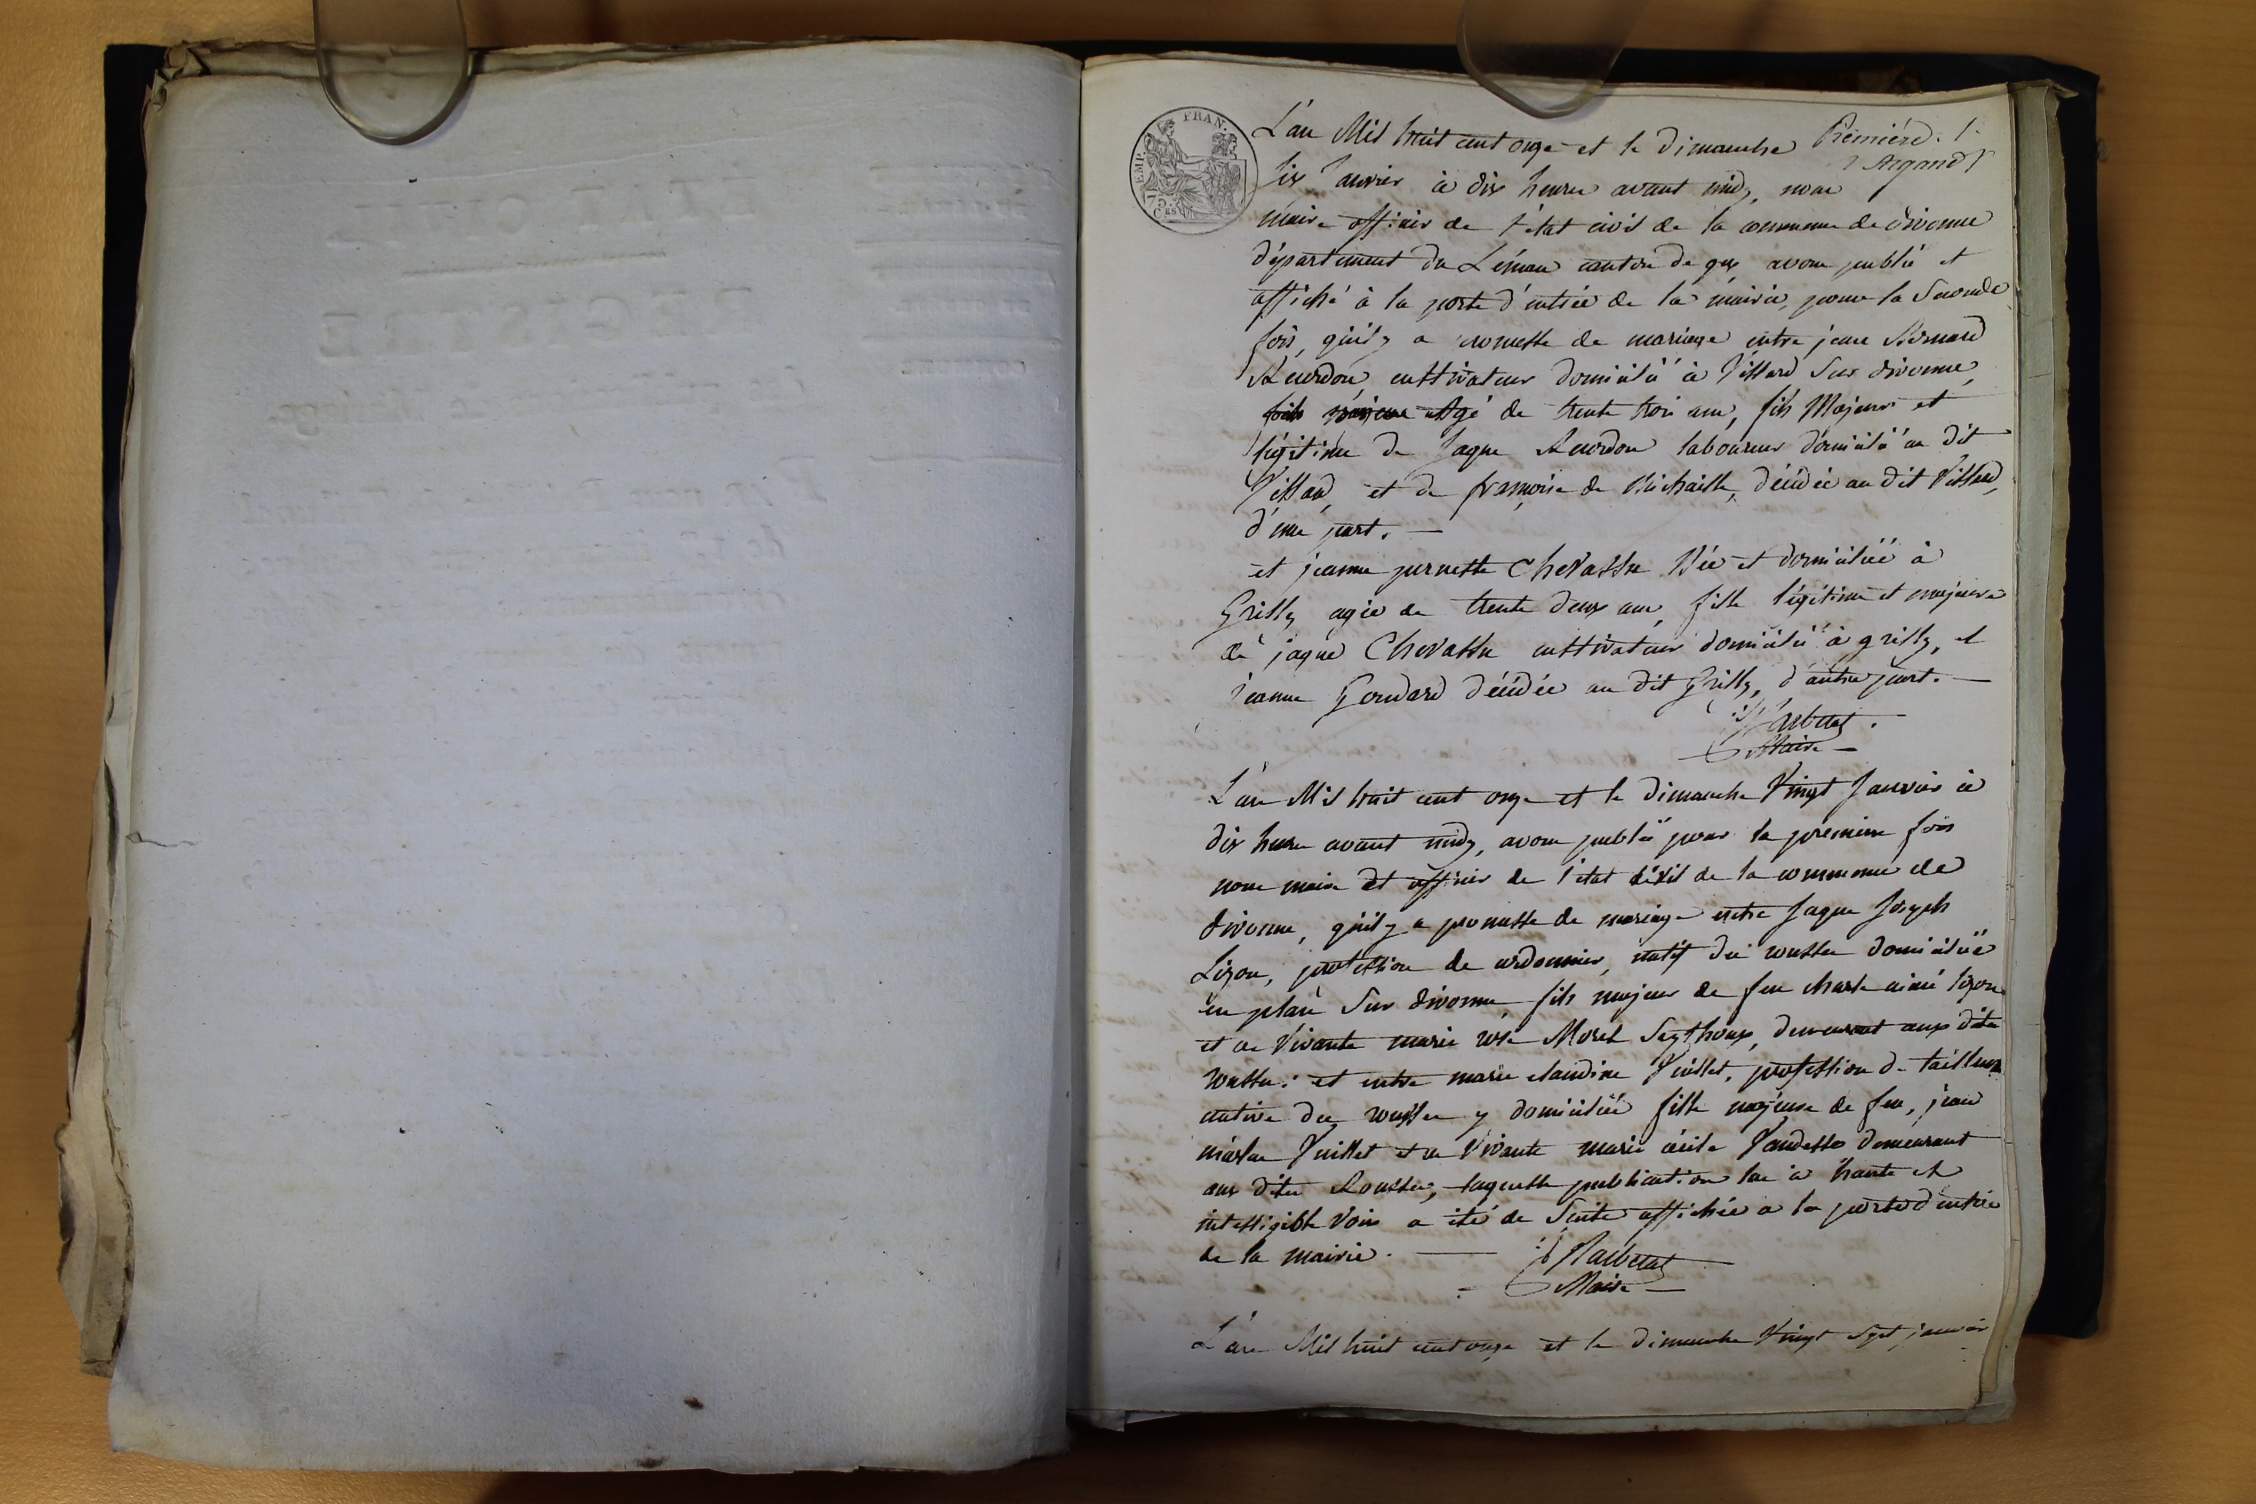 EMP. FRAN.
75.
Cts
Première. 1.
Argand
L'an Mil huit cent onze et le dimanche
six Janvier à dix heures avant midy, nous
maire officier de l'état civil de la commune de divonne
département du Léman canton de gex avons publié et
affiché à la porte d'entrée de la mairie, pour la Seconde
fois, qu'il y a promesse de mariage entre jean Bernard
Reverdon cultivateur domicilié à Villard Sur divonne,
Agé de trente trois ans, fils Majeur et
légitime de Jaque Reverdon laboureur domicilié au dit
Villard, et de françoise de Michaille, décédée au dit Villard,
d'une part. —
et jeanne pernette Chevassu Née et domiciliée à
Grilly agée de trente deux ans, fille légitime et majeure
de jaque Chevassu cultivateur domicilié à grilly, et
jeanne Goudard décédée au dit Grilly, d'autre part. —
Maire
L'an Mil huit cent onze et le dimanche Vingt Janvier à
dix heures avant midy, avons publié pour la premiere fois
nous maire et officier de l'état civil de la commune de
divonne, qu'il y a promesse de mariage entre Jaque Joseph
Lizon, profession de cordonnier, natif du rousses domicilié
en plan Sur divonne fils majeur de feu charle aimé lizon
et de Vivante marie rose Morel Seythoux, demeurant aux dites
rousses: et entre marie claudine Vuillet, profession de tailleuse
native des rousses y domiciliée fille majeure de feu, jean
Vuillet et de Vivante marie cécile Vandelle demeurant
aux dites Rousses, laquelle publication lue à haute et
intelligible Voix a été de Suite affichée a la porte d'entrée
de la mairie. —
Maire
L'an Mil huit cent onze et le dimanche Vingt Sept janvier